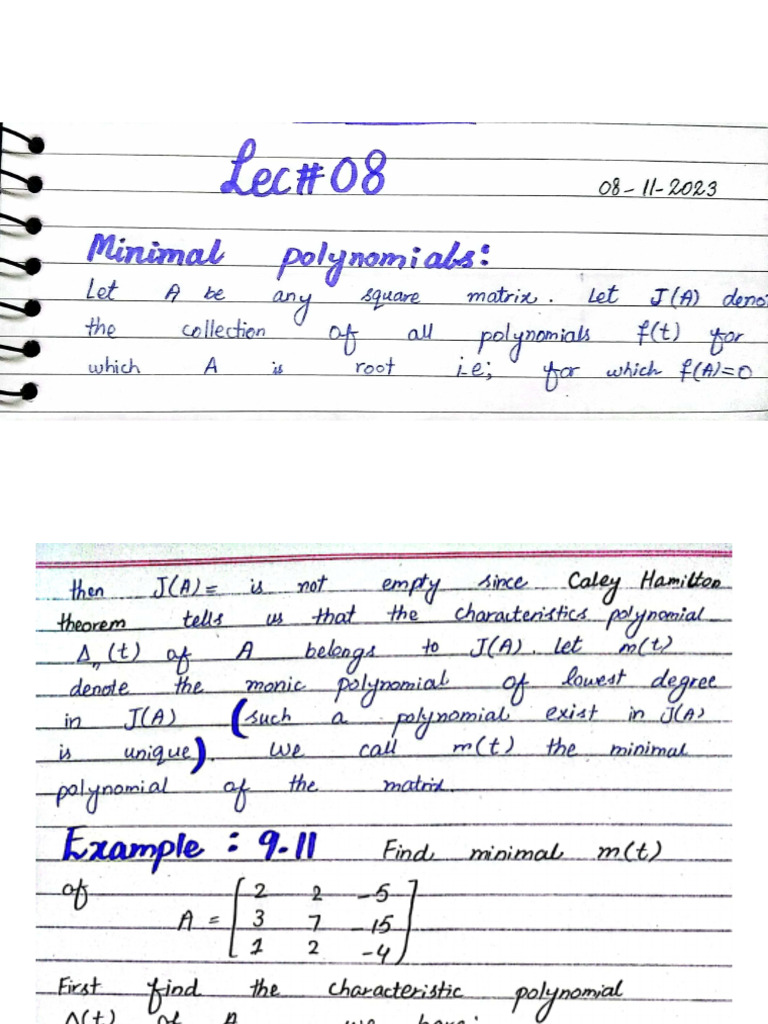 Lec# 08
08-11-2023
Minimal polynomials:
Let A be any square matrix. Let J(A) deno
the collection of all polynomials f(t) for
which A is root i.e; for which f(A)=0
then J(A)= is not empty since Caley Hamilton
theorem tells us that the characteristics polynomial
Δ (t) of A belongs to J(A). Let m(t)
denote the monic polynomial of lowest degree
in J(A) (such a polynomial exist in J(A)
is unique). We call m(t) the minimal
polynomial of the matrix.
Example : 9-11 Find minimal m(t)
of
A = [2 2 -5
3 7 -15
1 2 -4]
First find the characteristic polynomial
Δ(t) of A we have: